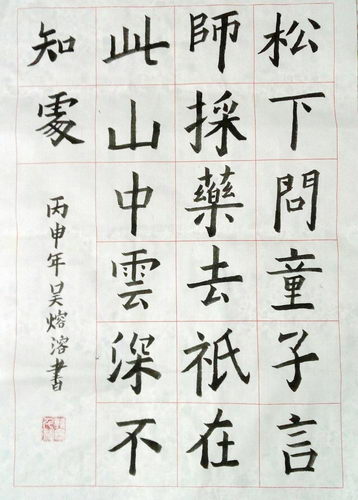 松下問童子言
師採藥去祇在
此山中雲深不
知處
丙申年吴熔溶書